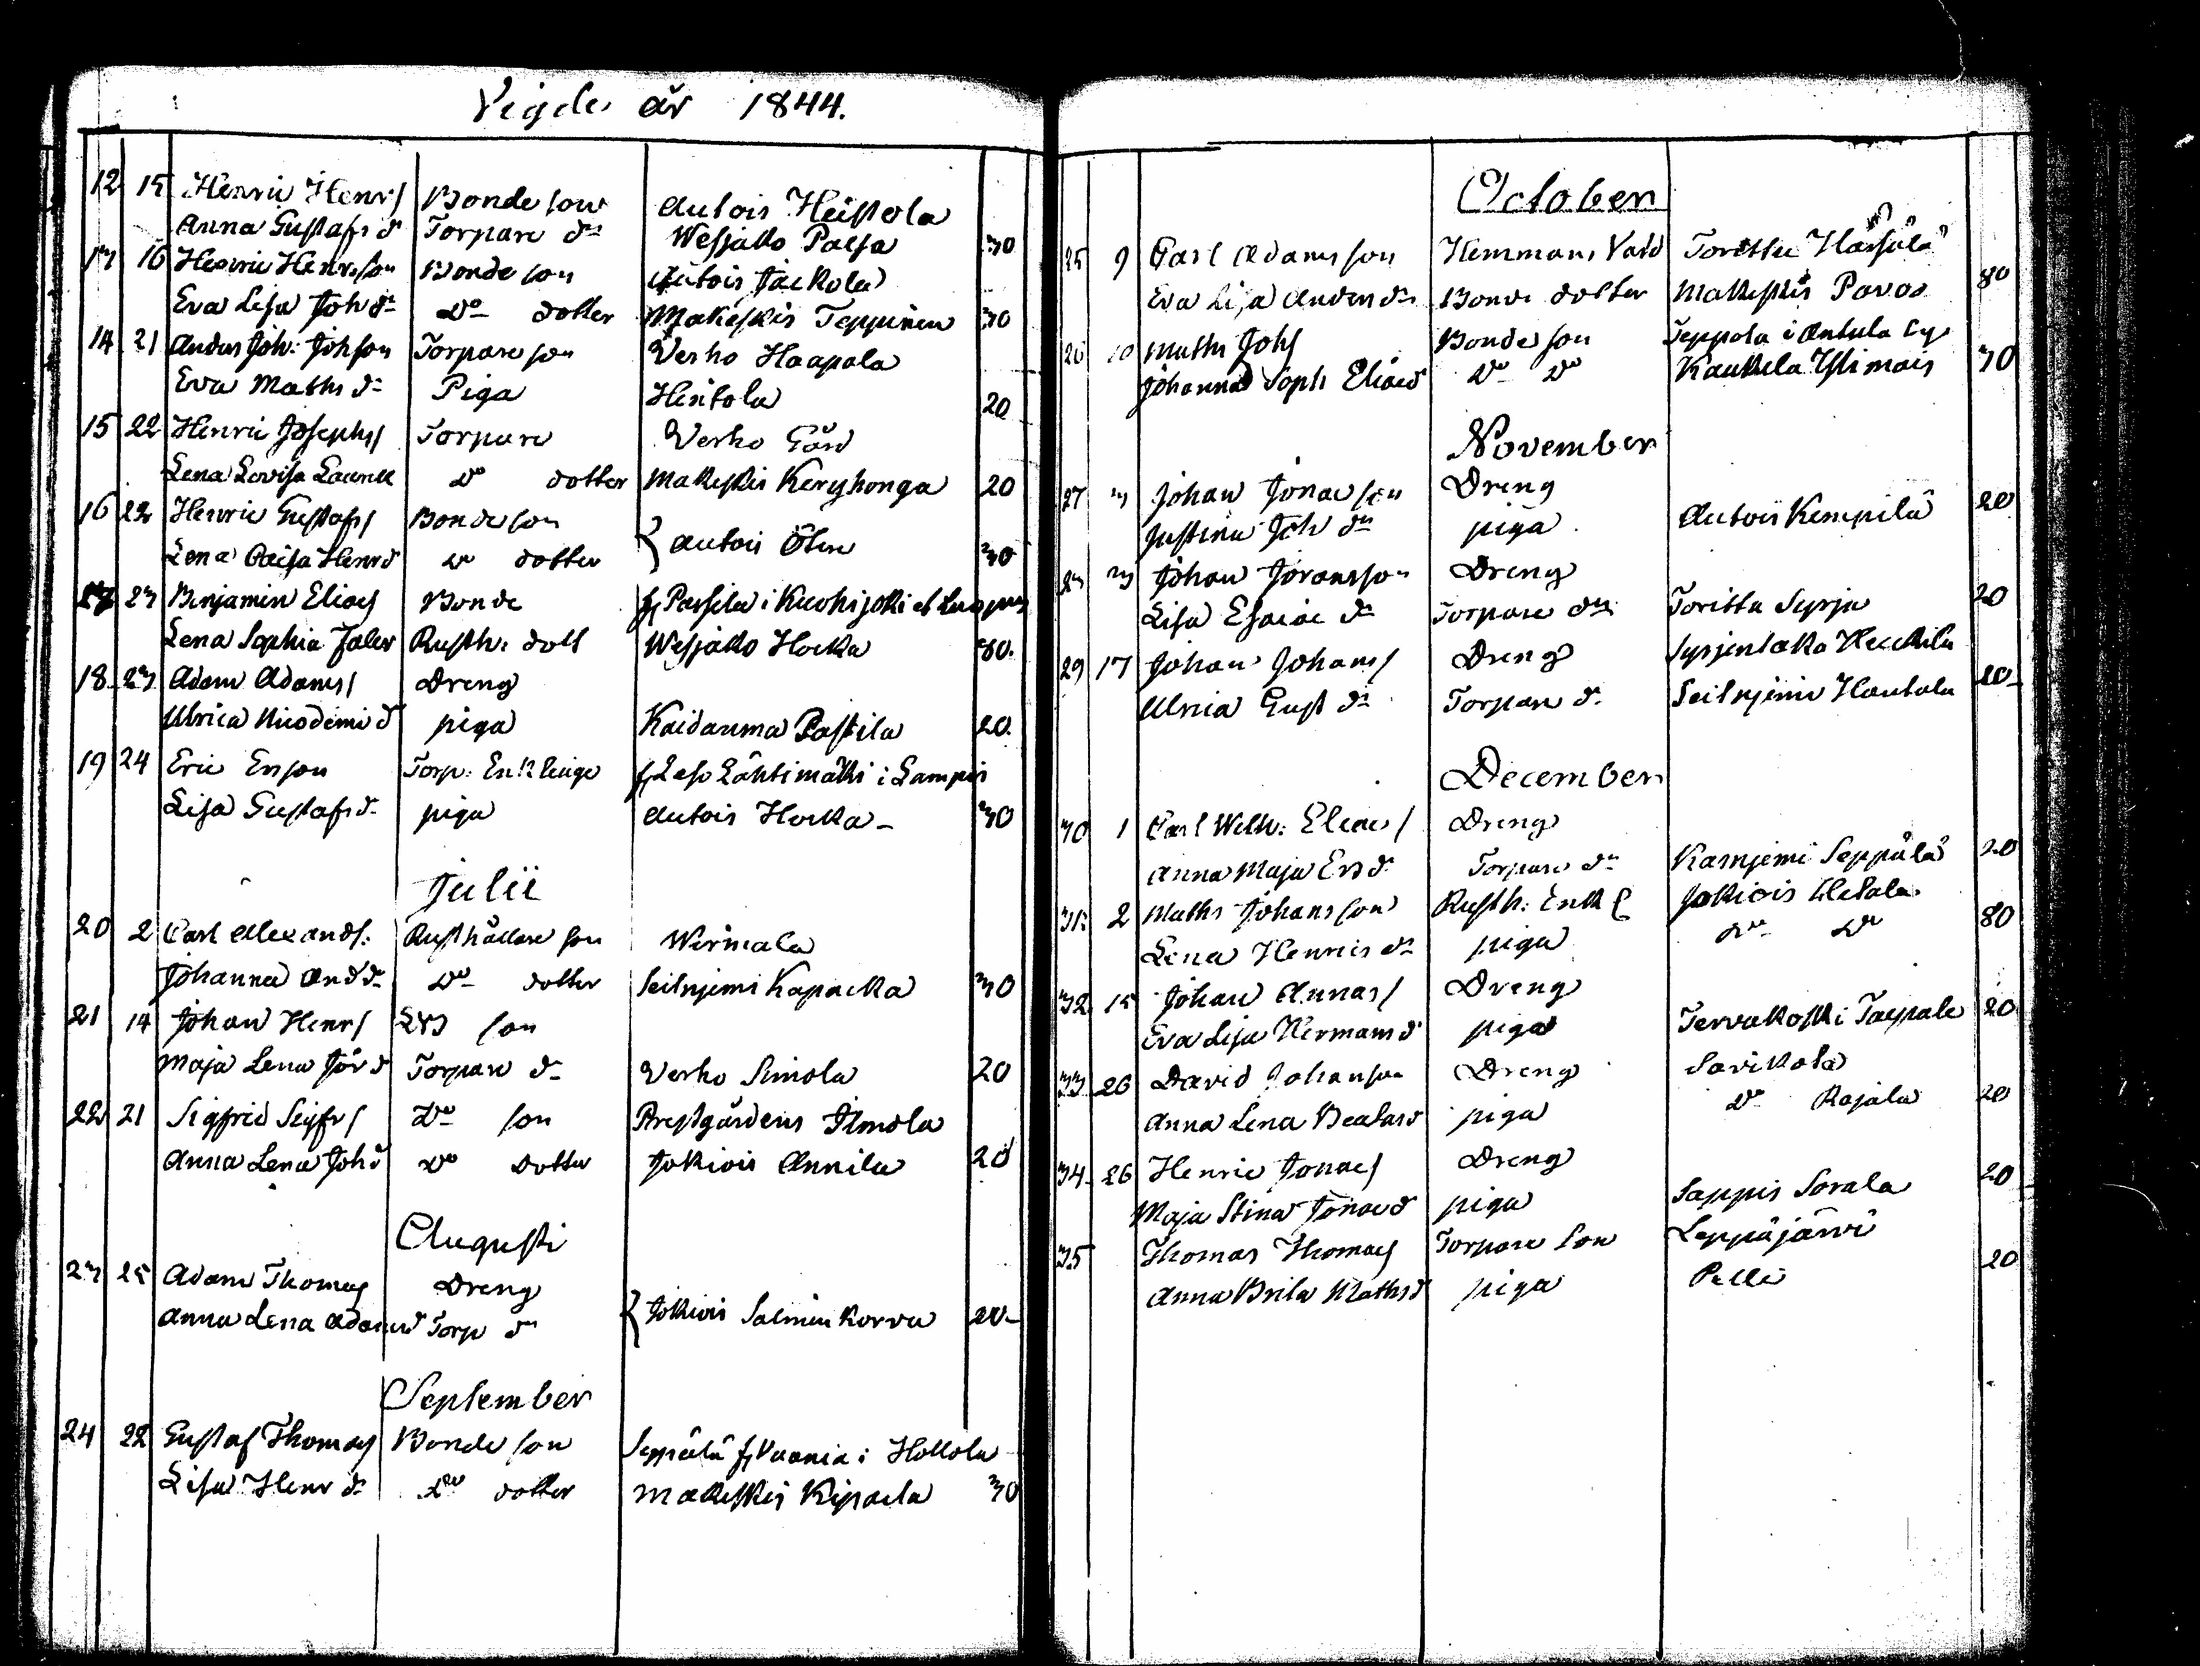 Vigde år 1844.
12 15 Henric Henrs Bonde son Autois Heistola
Anna Gustafs dr Torpare dr Wesjako Paesa 30
13 16 Henric Henrsson Bonde son Autois Jackola
Eva Lisa Joh dr Do dotter Makeskis Teppinen 30
14 21 Anders Joh: Johson Torpare son Verho Haapala
Eva Maths dr Piga Hentola 20
15 22 Henric Josephs Torpare Verho Gård
Lena Lovisa do dotter Makeskis Keryhonga 20
16 22 Henric Gustafs Bonde son
Lena Caisa Henrd do dotter } Autois Öhn 30
17 23 Benjamin Elias Bonde fr Parsila i Kuohijoki
Lena Sophia Rusth: dott Wesjako Hocka 80.
18 23 Adam Adams Dreng
Ulrica Nicodemi d piga Kaidanma Pastila 20.
19 24 Eric Erson Torp: Enkling fr Lahtimäki i Lampis
Lisa Gustafs dr piga Autois Hocka 30
Julii
20 2 Carl Alexands: Rusthållare son Wirmala
Johanna And dr Do dotter Seitnjemi Kapacka 30
21 14 Johan Henrs son
Maja Lena Jör d Torpare dr Verho Simola 20
22 21 Sigfrid Sigfrs Do son Prestgårdens Ilmola
Anna Lena Joh d do Dotter Jokiois Annila 20
Augusti
23 25 Adam Thomas Dreng
Anna Lena Adamsd Torp dr { Jokiois Salmin korva 20
September
24 22 Gustaf Thomas Bonde son Seppälä fr Vaania i Hollola
Lisa Henr dr do dotter Makeskis Kipaela 30
October
25 9 Carl Adamsson Hemmans Torittu Hassala
Eva Lisa Anders dr Bonde dotter Makeskis Pavas 80
26 10 Maths Johs Bonde son Teppola i Antula
Johanna Soph Eliaed do do Kaukela Ylimais 30
November
27 3 Johan Jonasson Dreng
Justina Joh dr piga Autois Kempilä 20
28 3 Johan Göransson Dreng
Lisa Esaiae dr Torpare dr Torittu Syrja 20
29 17 Johan Johans Dreng Syrjentaka Heickila
Ulrica Gust dr Torpare d. Seitnjemi Hautala 20
December
30 1 Carl Wilh: Elias Dreng
Anna Maja Ers d Torpare dr Karnjemi Seppälä 20
31 2 Maths Johansson Rusth: Enkl Jokiois Uetala
Lena Henrics dr piga do do 80
32 15 Johan Annas Dreng
Eva Lisa Hermans d piga Tervakoski Taepale 20
33 26 David Johanson Dreng Savikola
Anna Lena Beatasd piga do Rajala 20
34 26 Henric Jonas Dreng
Maja Stina Jonaed piga Sappis Sorala 20
35 Thomas Thomas Torpare son Leppäjärvi
Anna Brita Mathsd piga Pelli 20